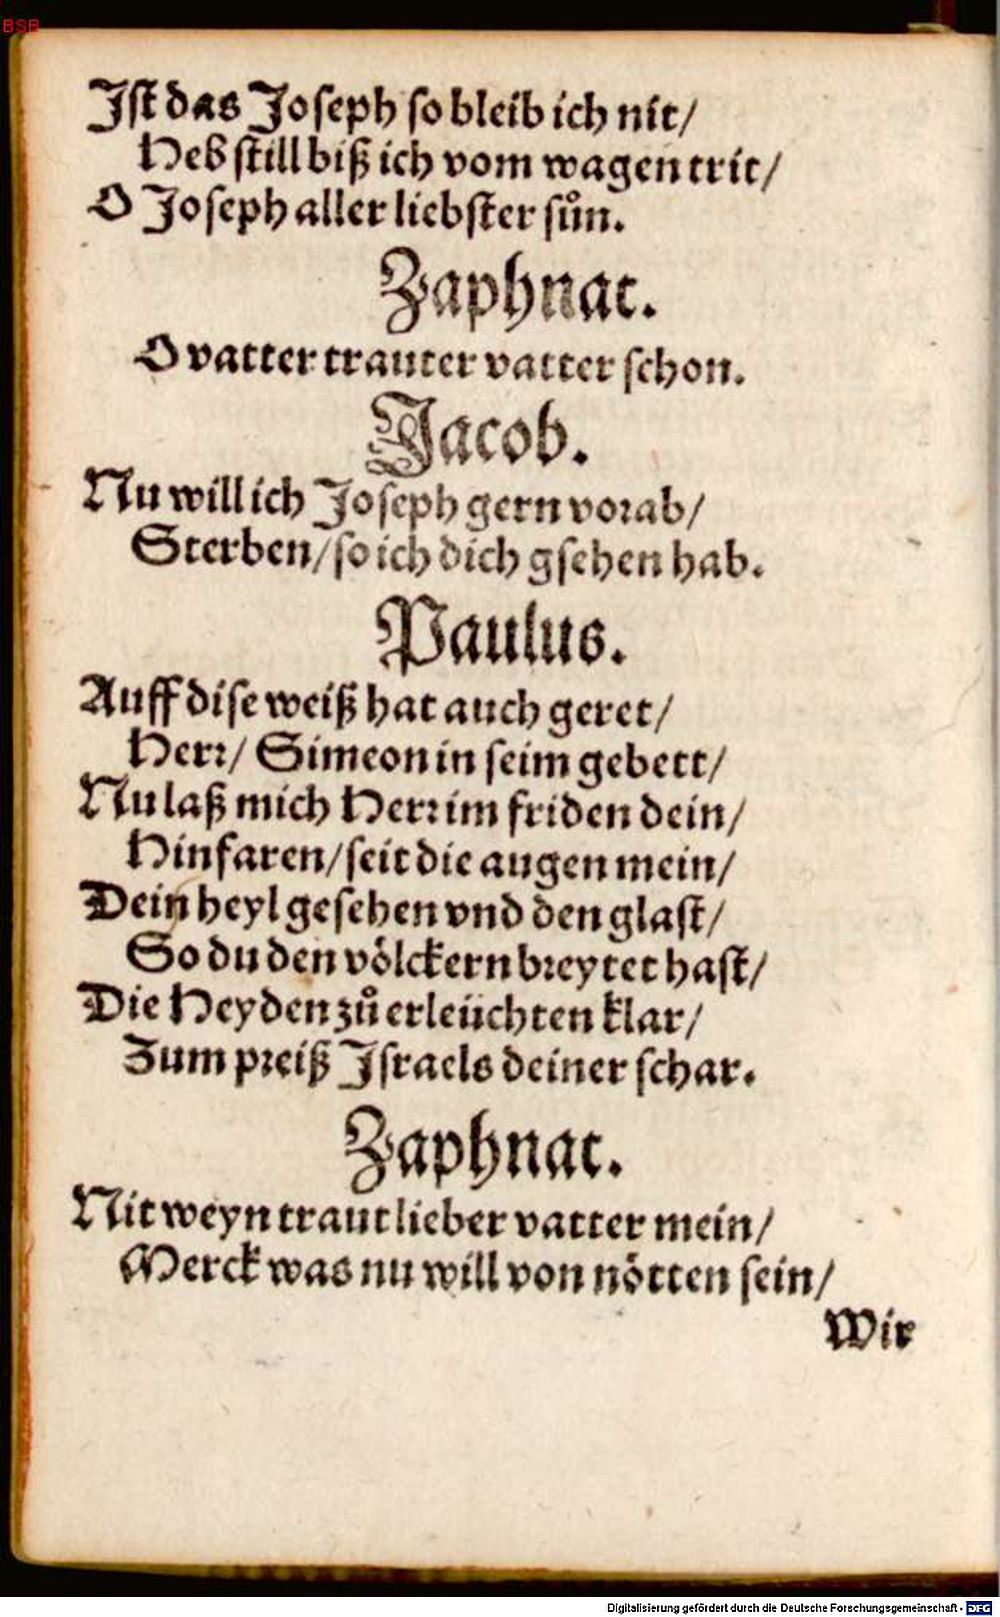 BSB
Jſt das Joſeph ſo bleib ich nit/
Heb ſtill biß ich vom wagen trit/
O Joſeph aller liebſter ſůn.
Zaphnat.
O vatter trauter vatter ſchon.
Jacob.
Nu will ich Joſeph gern vorab/
Sterben/ ſo ich dich gſehen hab.
Paulus.
Auff diſe weiß hat auch geret/
Herr/ Simeon in ſeim gebett/
Nu laß mich Herr im friden dein/
Hinfaren/ ſeit die augen mein/
Dein heyl geſehen vnd den glaſt/
So du den völckern breytet haſt/
Die Heyden zů erleüchten klar/
Zum preiß Jſraels deiner ſchar.
Zaphnat.
Nit weyn traut lieber vatter mein/
Merck was nu will von nötten ſein/
Wir
Digitalisierung gefördert durch die Deutsche Forschungsgemeinschaft - DFG